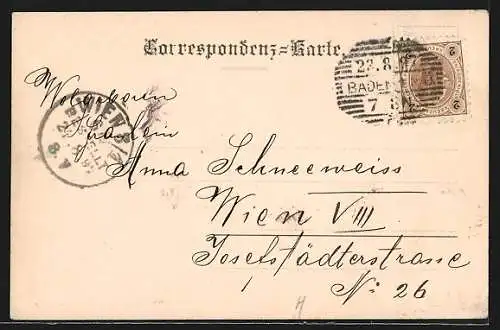 Correspondenz-Karte.
23.8
BADEN
7
2
2
Wolgeboren
Fräulein
WIEN 8/
BESTELLT
Anna Schneeweiss
Wien VIII
Josefstädterstrasse
No 26